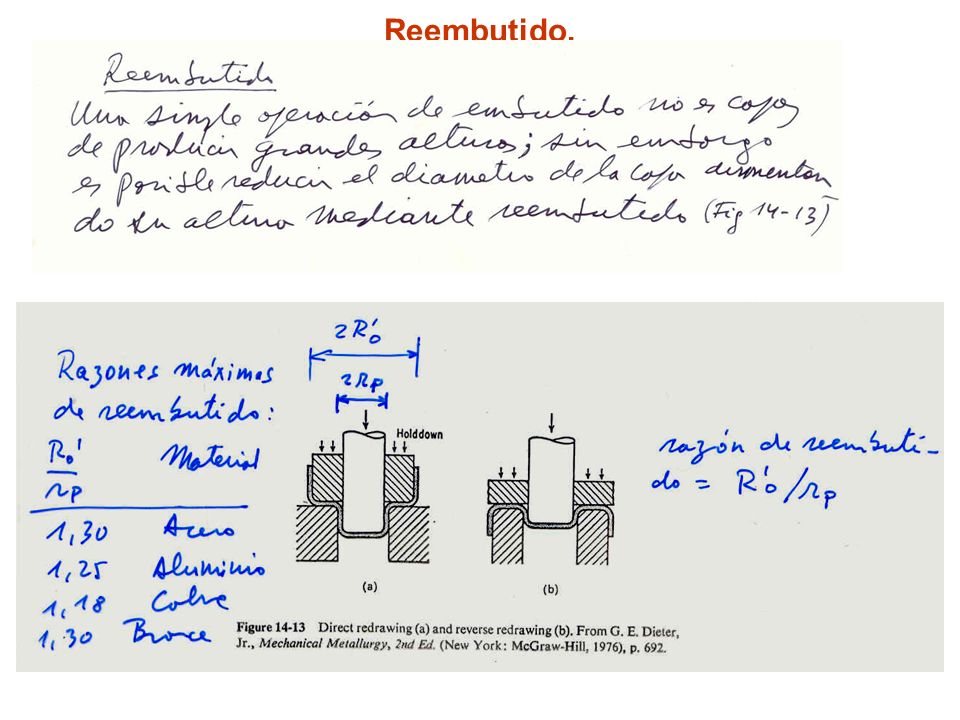 Reembutido.
Reembutido
Una simple operación de embutido no es capaz
de producir grandes alturas; sin embargo
es posible reducir el diametro de la copa aumentan
do su altura mediante reembutido (Fig 14-13)
2R'o
2rp
Razones máximas
de reembutido:
R'o/rp Material
1,30 Acero
1,25 Aluminio
1,18 Cobre
1,30 Bronce
Holddown
(a)
(b)
razón de reembuti-
do = R'o/rp
Figure 14-13 Direct redrawing (a) and reverse redrawing (b). From G. E. Dieter,
Jr., Mechanical Metallurgy, 2nd Ed. (New York: McGraw-Hill, 1976), p. 692.